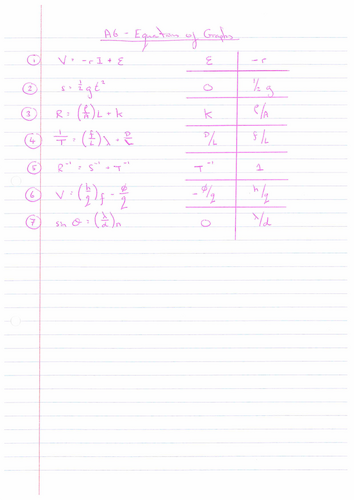 A6 - Equation of Graphs
① V = -rI + ε ε -r
② s = ½gt² 0 ½ g
③ R = (ρ/A)L + k k ρ/A
④ D/L
⑤ R⁻¹ = S⁻¹ - T⁻¹ T⁻¹ 1
⑥ V = (h/2)f - ø/2 -ø/2 h/2
⑦ sin θ = (λ/d)n 0 λ/d